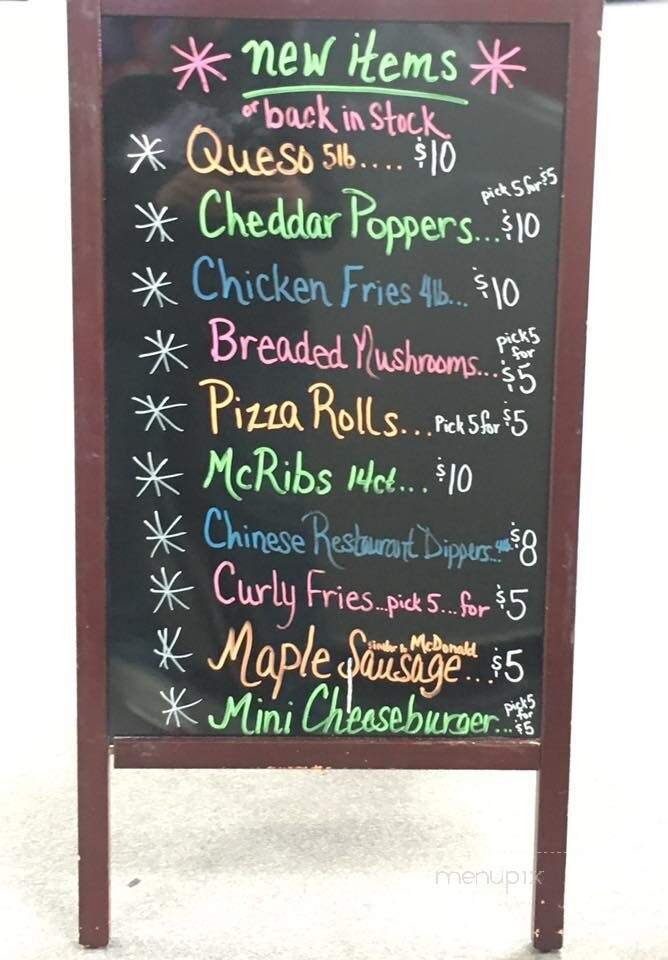 new items
or back in stock
Queso 5lb.... $10
pick 5 for $5
Cheddar Poppers... $10
Chicken Fries 4lb... $10
Breaded Mushrooms... pick 5 for $5
Pizza Rolls... Pick 5 for $5
McRibs 14ct... $10
Chinese Restaurant Dippers... 4lb $8
Curly Fries...pick 5...for $5
Similar to McDonald
Maple Sausage... $5
Mini Cheeseburger... pick 5 for $5
menupix